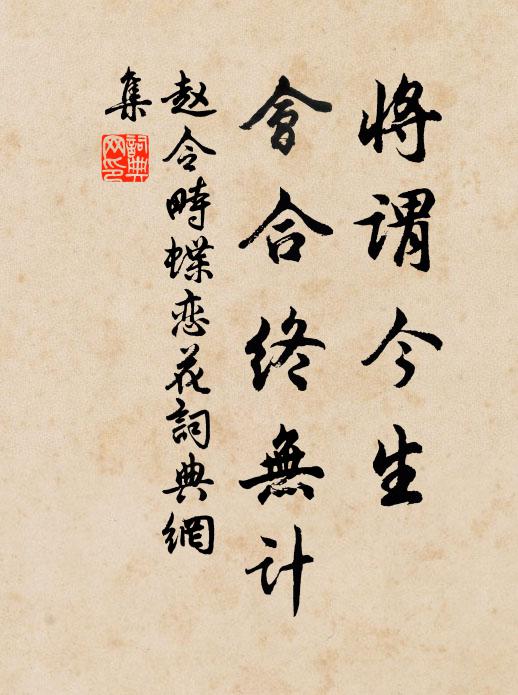 将谓今生
會合終無计
赵令畤蝶恋花詞典網
集
詞典网印